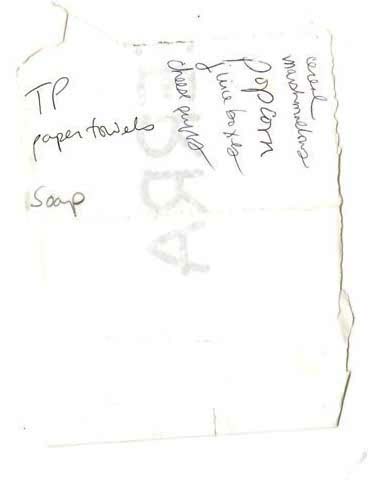 TP
paper towels
Soap
cereal
marshmallows
popcorn
juice boxes
cheese puffs